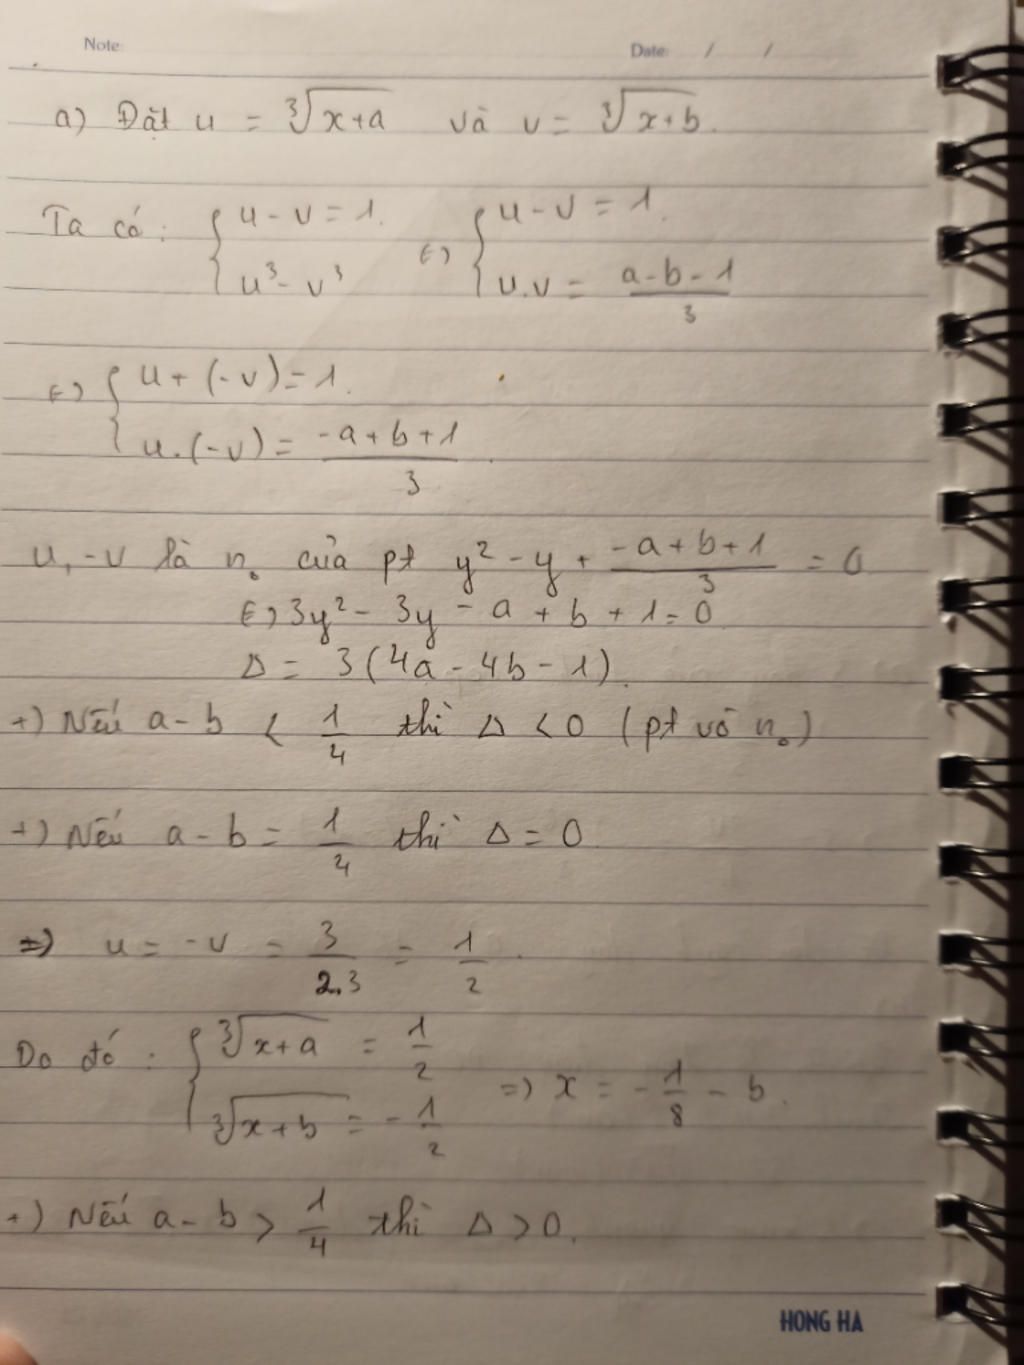 Note: Date: / /
a) Đặt u = ∛(x+a) và v = ∛(x+b).
Ta có: { u - v = 1. ⇔ { u - v = 1.
u³ - v³ u.v = (a-b-1)/3
⇔ { u + (-v) = 1.
u.(-v) = (-a+b+1)/3.
u, -v là n₀ của pt y² - y + (-a+b+1)/3 = 0
⇔ 3y² - 3y - a + b + 1 = 0
Δ = 3(4a - 4b - 1).
+) Nếu a - b < 1/4 thì Δ < 0 (pt vô n₀)
+) Nếu a - b = 1/4 thì Δ = 0
⇒ u = -v = 3/2.3 = 1/2.
Do đó: { ∛(x+a) = 1/2
∛(x+b) = -1/2 ⇒ x = -1/8 - b.
+) Nếu a - b > 1/4 thì Δ > 0.
HONG HA